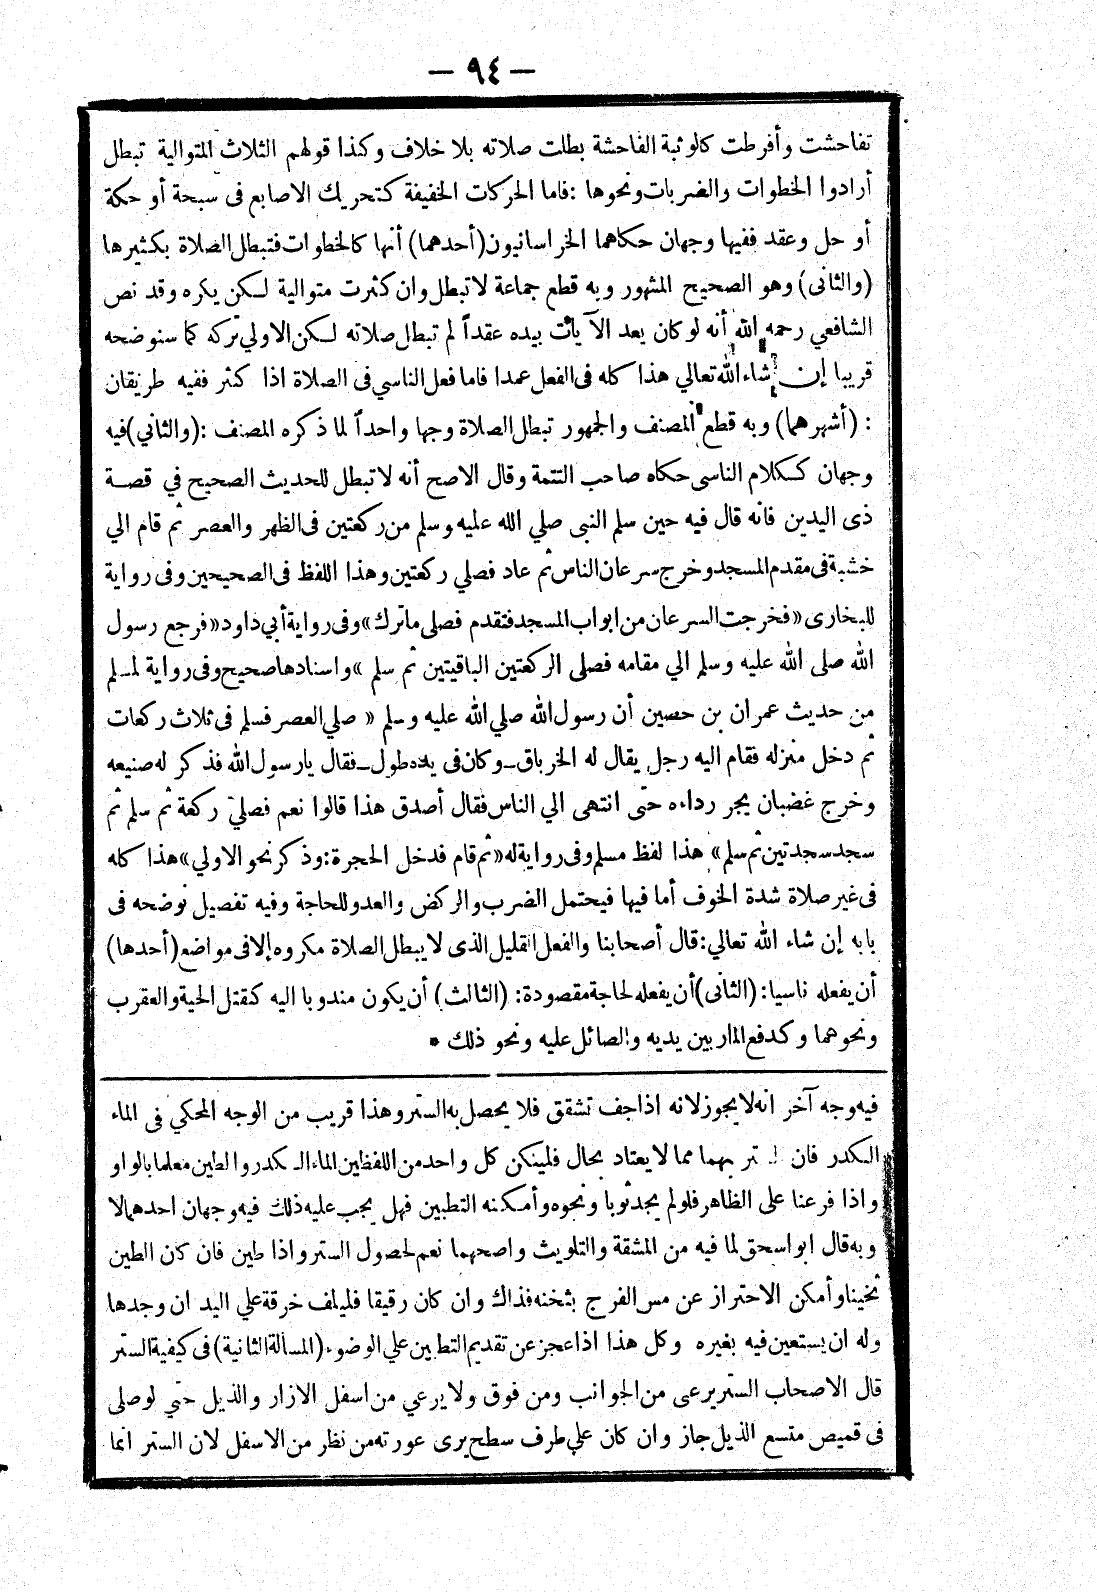 — ٩٤ —
تفاحشت وأفرطت كالوثبة الفاحشة بطلت صلاته بلا خلاف وكذا قولهم الثلاث المتوالية تبطل
أرادوا الخطوات والضربات ونحوها : فاما الحركات الخفيفة كتحريك الاصابع فى سبحة أو حكة
أو حل وعقد ففيها وجهان حكاهما الخراسانيون (أحدهما) أنها كالخطوات فتبطل الصلاة بكثيرها
(والثانى) وهو الصحيح المشهور وبه قطع جماعة لا تبطل وان كثرت متوالية لكن يكره وقد نص
الشافعي رحمه الله أنه لو كان يعد الآيات بيده عقداً لم تبطل صلاته لكن الاولي تركه كما سنوضحه
قريبا إن شاء الله تعالي هذا كله فى الفعل عمدا فاما فعل الناسي فى الصلاة اذا كثر ففيه طريقان
: (أشهرهما) وبه قطع المصنف والجمهور تبطل الصلاة وجها واحداً لما ذكره المصنف : (والثاني) فيه
وجهان ككلام الناسى حكاه صاحب التتمة وقال الاصح أنه لا تبطل للحديث الصحيح في قصة
ذى اليدين فانه قال فيه حين سلم النبى صلي الله عليه وسلم من ركعتين فى الظهر والعصر ثم قام الي
خشبة فى مقدم المسجد وخرج سرعان الناس ثم عاد فصلي ركعتين وهذا اللفظ فى الصحيحين وفى رواية
للبخارى «فخرجت السرعان من ابواب المسجد فتقدم فصلى ماترك» وفى رواية أبي داود «فرجع رسول
الله صلى الله عليه وسلم الي مقامه فصلى الركعتين الباقيتين ثم سلم» واسنادها صحيح وفى رواية لمسلم
من حديث عمران بن حصين أن رسول الله صلي الله عليه وسلم « صلي العصر فسلم فى ثلاث ركعات
ثم دخل منزله فقام اليه رجل يقال له الخرباق ــ وكان فى يده طول ــ فقال يارسول الله فذكر له صنيعه
وخرج غضبان يجر رداءه حتى انتهى الي الناس فقال أصدق هذا قالوا نعم فصلي ركعة ثم سلم ثم
سجد سجدتين ثم سلم» هذا لفظ مسلم وفى رواية له «ثم قام فدخل الحجرة: وذكر نحو الاولي» هذا كله
فى غير صلاة شدة الخوف أما فيها فيحتمل الضرب والركض والعدو للحاجة وفيه تفصيل نوضحه فى
بابه إن شاء الله تعالي: قال أصحابنا والفعل القليل الذى لا يبطل الصلاة مكروه إلا فى مواضع (أحدها)
أن يفعله ناسيا : (الثانى) أن يفعله لحاجة مقصودة : (الثالث) أن يكون مندوبا اليه كقتل الحية والعقرب
ونحوهما وكدفع المار بين يديه والصائل عليه ونحو ذلك *
فيه وجه آخر انه لا يجوز لانه اذا جف تشقق فلا يحصل به الستر وهذا قريب من الوجه المحكي فى الماء
الكدر فان بهما مما لا يعتاد بحال فليكن كل واحد من اللفظين الماء الكدر والطين معلما بالواو
واذا فرعنا على الظاهر فلو لم يجد ثوبا ونحوه وأمكنه التطيين فهل يجب عليه ذلك فيه وجهان احدهما لا
وبه قال ابو اسحق لما فيه من المشقة والتلويث واصحهما نعم لحصول الستر واذا طين فان كان الطين
ثخينا وأمكن الاحتراز عن مس الفرج بثخنه فذاك وان كان رقيقا فليلف خرقة علي اليد ان وجدها
وله ان يستعين فيه بغيره وكل هذا اذا عجز عن تقديم التطيين علي الوضوء (المسألة الثانية) فى كيفية الستر
قال الاصحاب الستر يرعى من الجوانب ومن فوق ولا يرعي من اسفل الازار والذيل حتي لو صلى
فى قميص متسع الذيل جاز وان كان علي طرف سطح يرى عورته من نظر من الاسفل لان الستر انما